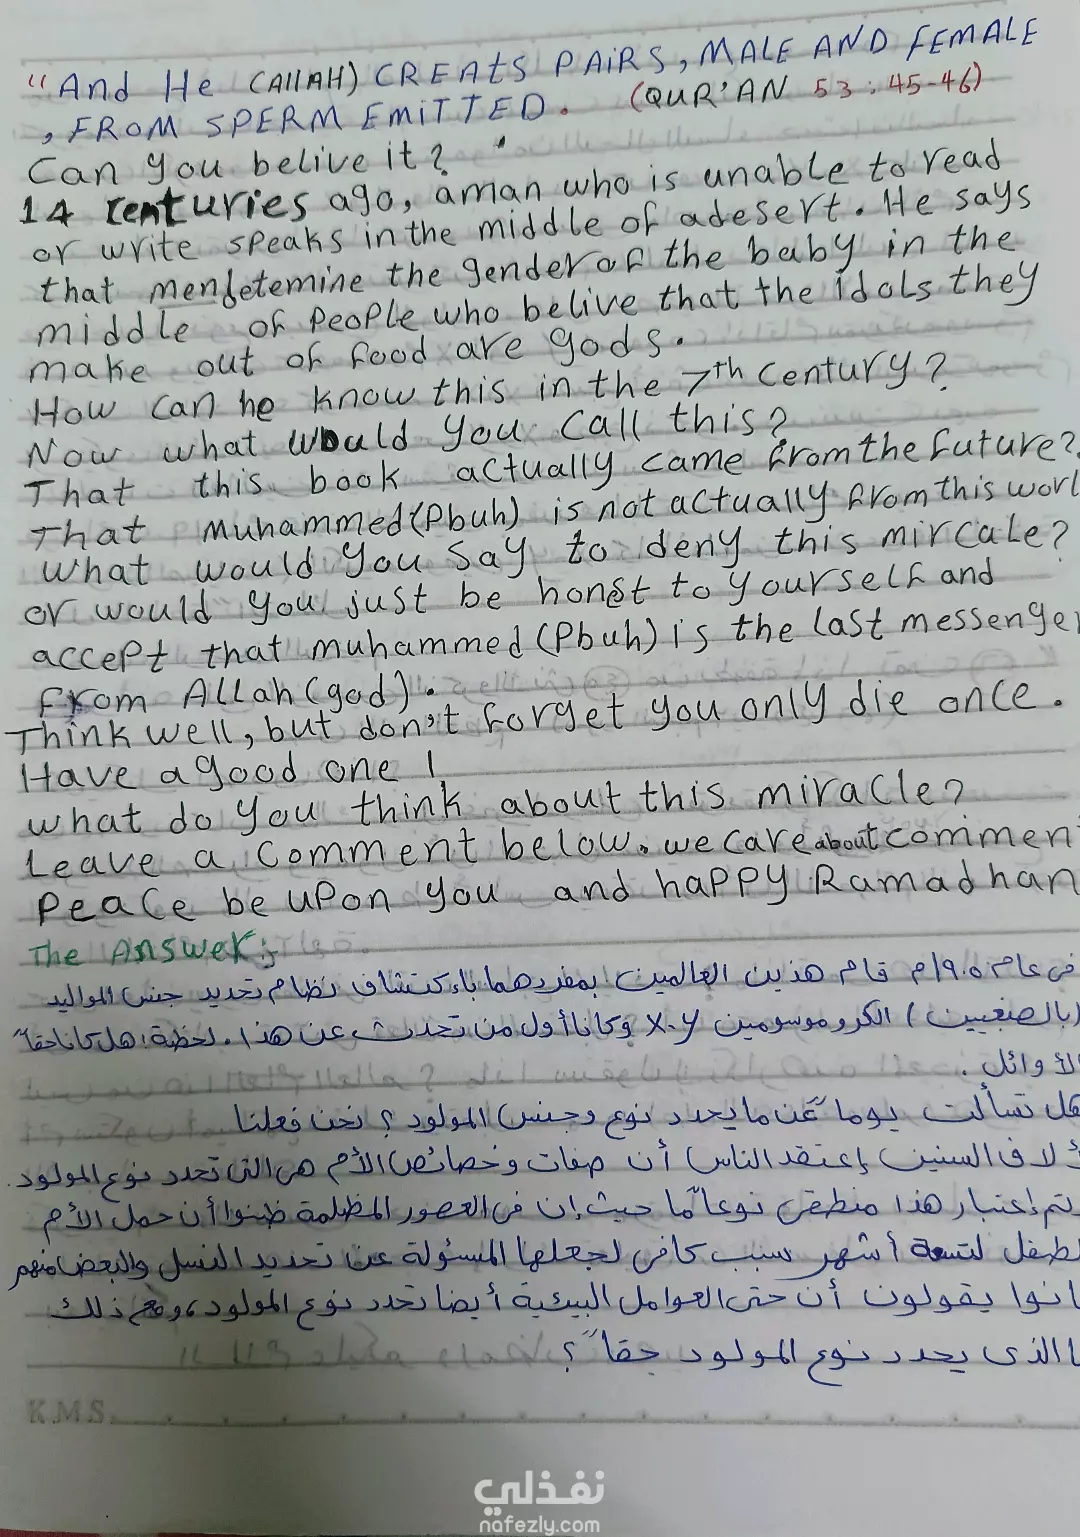 "And He (AllAH) CREAtS PAiRS, MALE AND FEMALE
, FROM SPERM EMiTTED. (QUR'AN 53:45-46)
Can you belive it?
14 centuries ago, aman who is unable to read
or write speaks in the middle of adesert. He says
that men detemine the gender of the baby in the
middle of people who belive that the idols they
make out of food are gods.
How can he know this in the 7th century?
Now what would you call this?
That this book actually came from the future?
That Muhammed (Pbuh) is not actually from this worl
what would you say to deny this mircale?
or would you just be honest to yourself and
accept that muhammed (Pbuh) is the last messenger
from Allah (god).
Think well, but don't forget you only die once.
Have a good one!
what do you think about this miracle?
Leave a comment below. we care about commen
Peace be upon you and happy Ramadhan
The Answer:
فى عام 1905م قام هذين العالمين بمفردهما باءكتشاف نظام تحديد جنس المواليد
(بالصغيين) الكروموسومين X-Y وكانا أول من تحدث عن هذا. لحظة! هل كانا حقاً
الأوائل.
هل تسألت يوماً عن ما يحدد نوع وجنس المولود؟ نحن فعلنا
لاف السنين إعتقد الناس أن صفات وخصائص الأم هى التى تحدد نوع المولود.
تم إعتبار هذا منطقى نوعاً ما حيث إن فى العصور المظلمة ظنوا أن حمل الأم
لطفل لتسعة أشهر سبب كافى لجعلها المسئولة عن تحديد النسل والبعض منهم
انوا يقولون أن حتى العوامل البيئية أيضا تحدد نوع المولود، ومع ذلك
ا الذى يحدد نوع المولود حقاً؟
KMS
نفذلي
nafezly.com